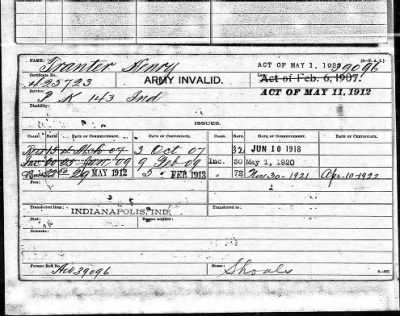 NAME: Tranter Henry
ACT OF MAY 1, 1920 39096
Certificate No. 425723
ARMY INVALID.
Act of Feb. 6, 1907.
Service: K 143 Ind
ACT OF MAY 11, 1912
Disability:
ISSUES.
CLASS. DATE OF COMMENCEMENT. DATE OF CERTIFICATE. CLASS. RATE. DATE OF COMMENCEMENT. DATE OF CERTIFICATE.
3 Oct 07 32 JUN 10 1918
Inc Jan 09 9 Feb 09 Inc. 50 May 1, 1920
29 MAY 1912 5 FEB 1913 72 Nov 30-1921 Apr. 10-1922
From
Transferred from INDIANAPOLIS, IND. Transferred to
Died
Remarks:
Former Roll No. Act 39096 Home: Shoals